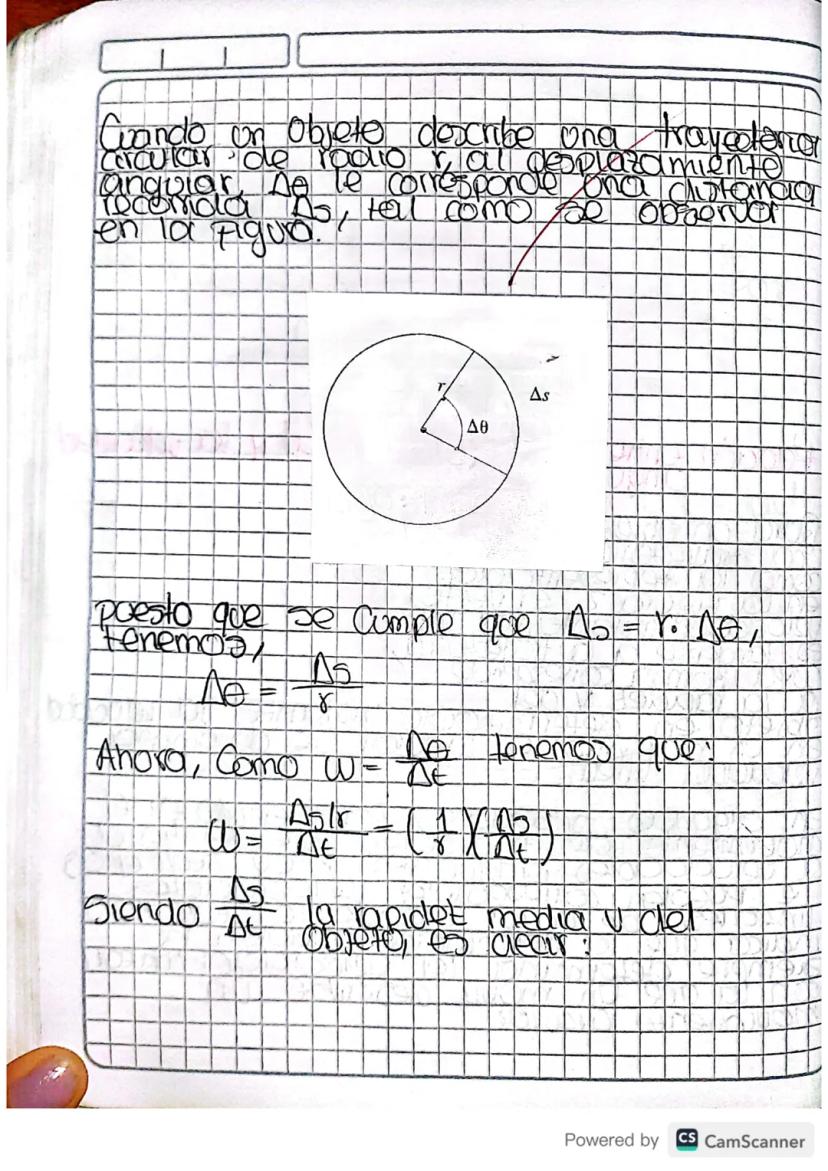 Cuando un Objeto describe una trayectoria
circular de radio r, al desplazamiento
angular Δθ le corresponde una distancia
recorrida Δs, tal como se observa
en la figura.
r
Δs
Δθ
puesto que se Cumple que Δs = r. Δθ,
tenemos,
Δθ = Δs/r
Ahora, Como ω = Δθ/Δt tenemos que:
ω = (Δs/r)/Δt = (1/r)(Δs/Δt)
Siendo Δs/Δt la rapidet media v del
Objeto, es decir:
Powered by CS CamScanner